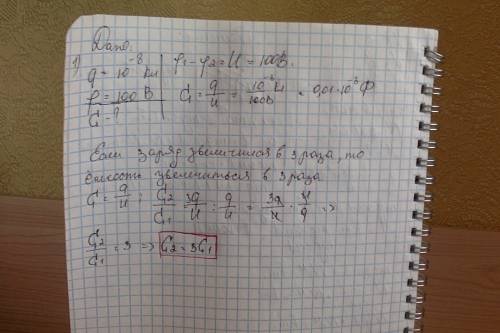 Дано:
1) q = 10⁻⁸ Кл
φ = 100 В
C₁ - ?
φ₁ - φ₂ = U = 100В.
C₁ = q/U = 10⁻⁸Кл/100В = 0,01·10⁻⁸ Ф
Если заряд увеличился в 3 раза, то
ёмкость увеличиться в 3 раза
C = q/U; C₂/C₁ = 3q/U : q/U = 3q/U · U/q =>
C₂/C₁ = 3 => C₂ = 3C₁